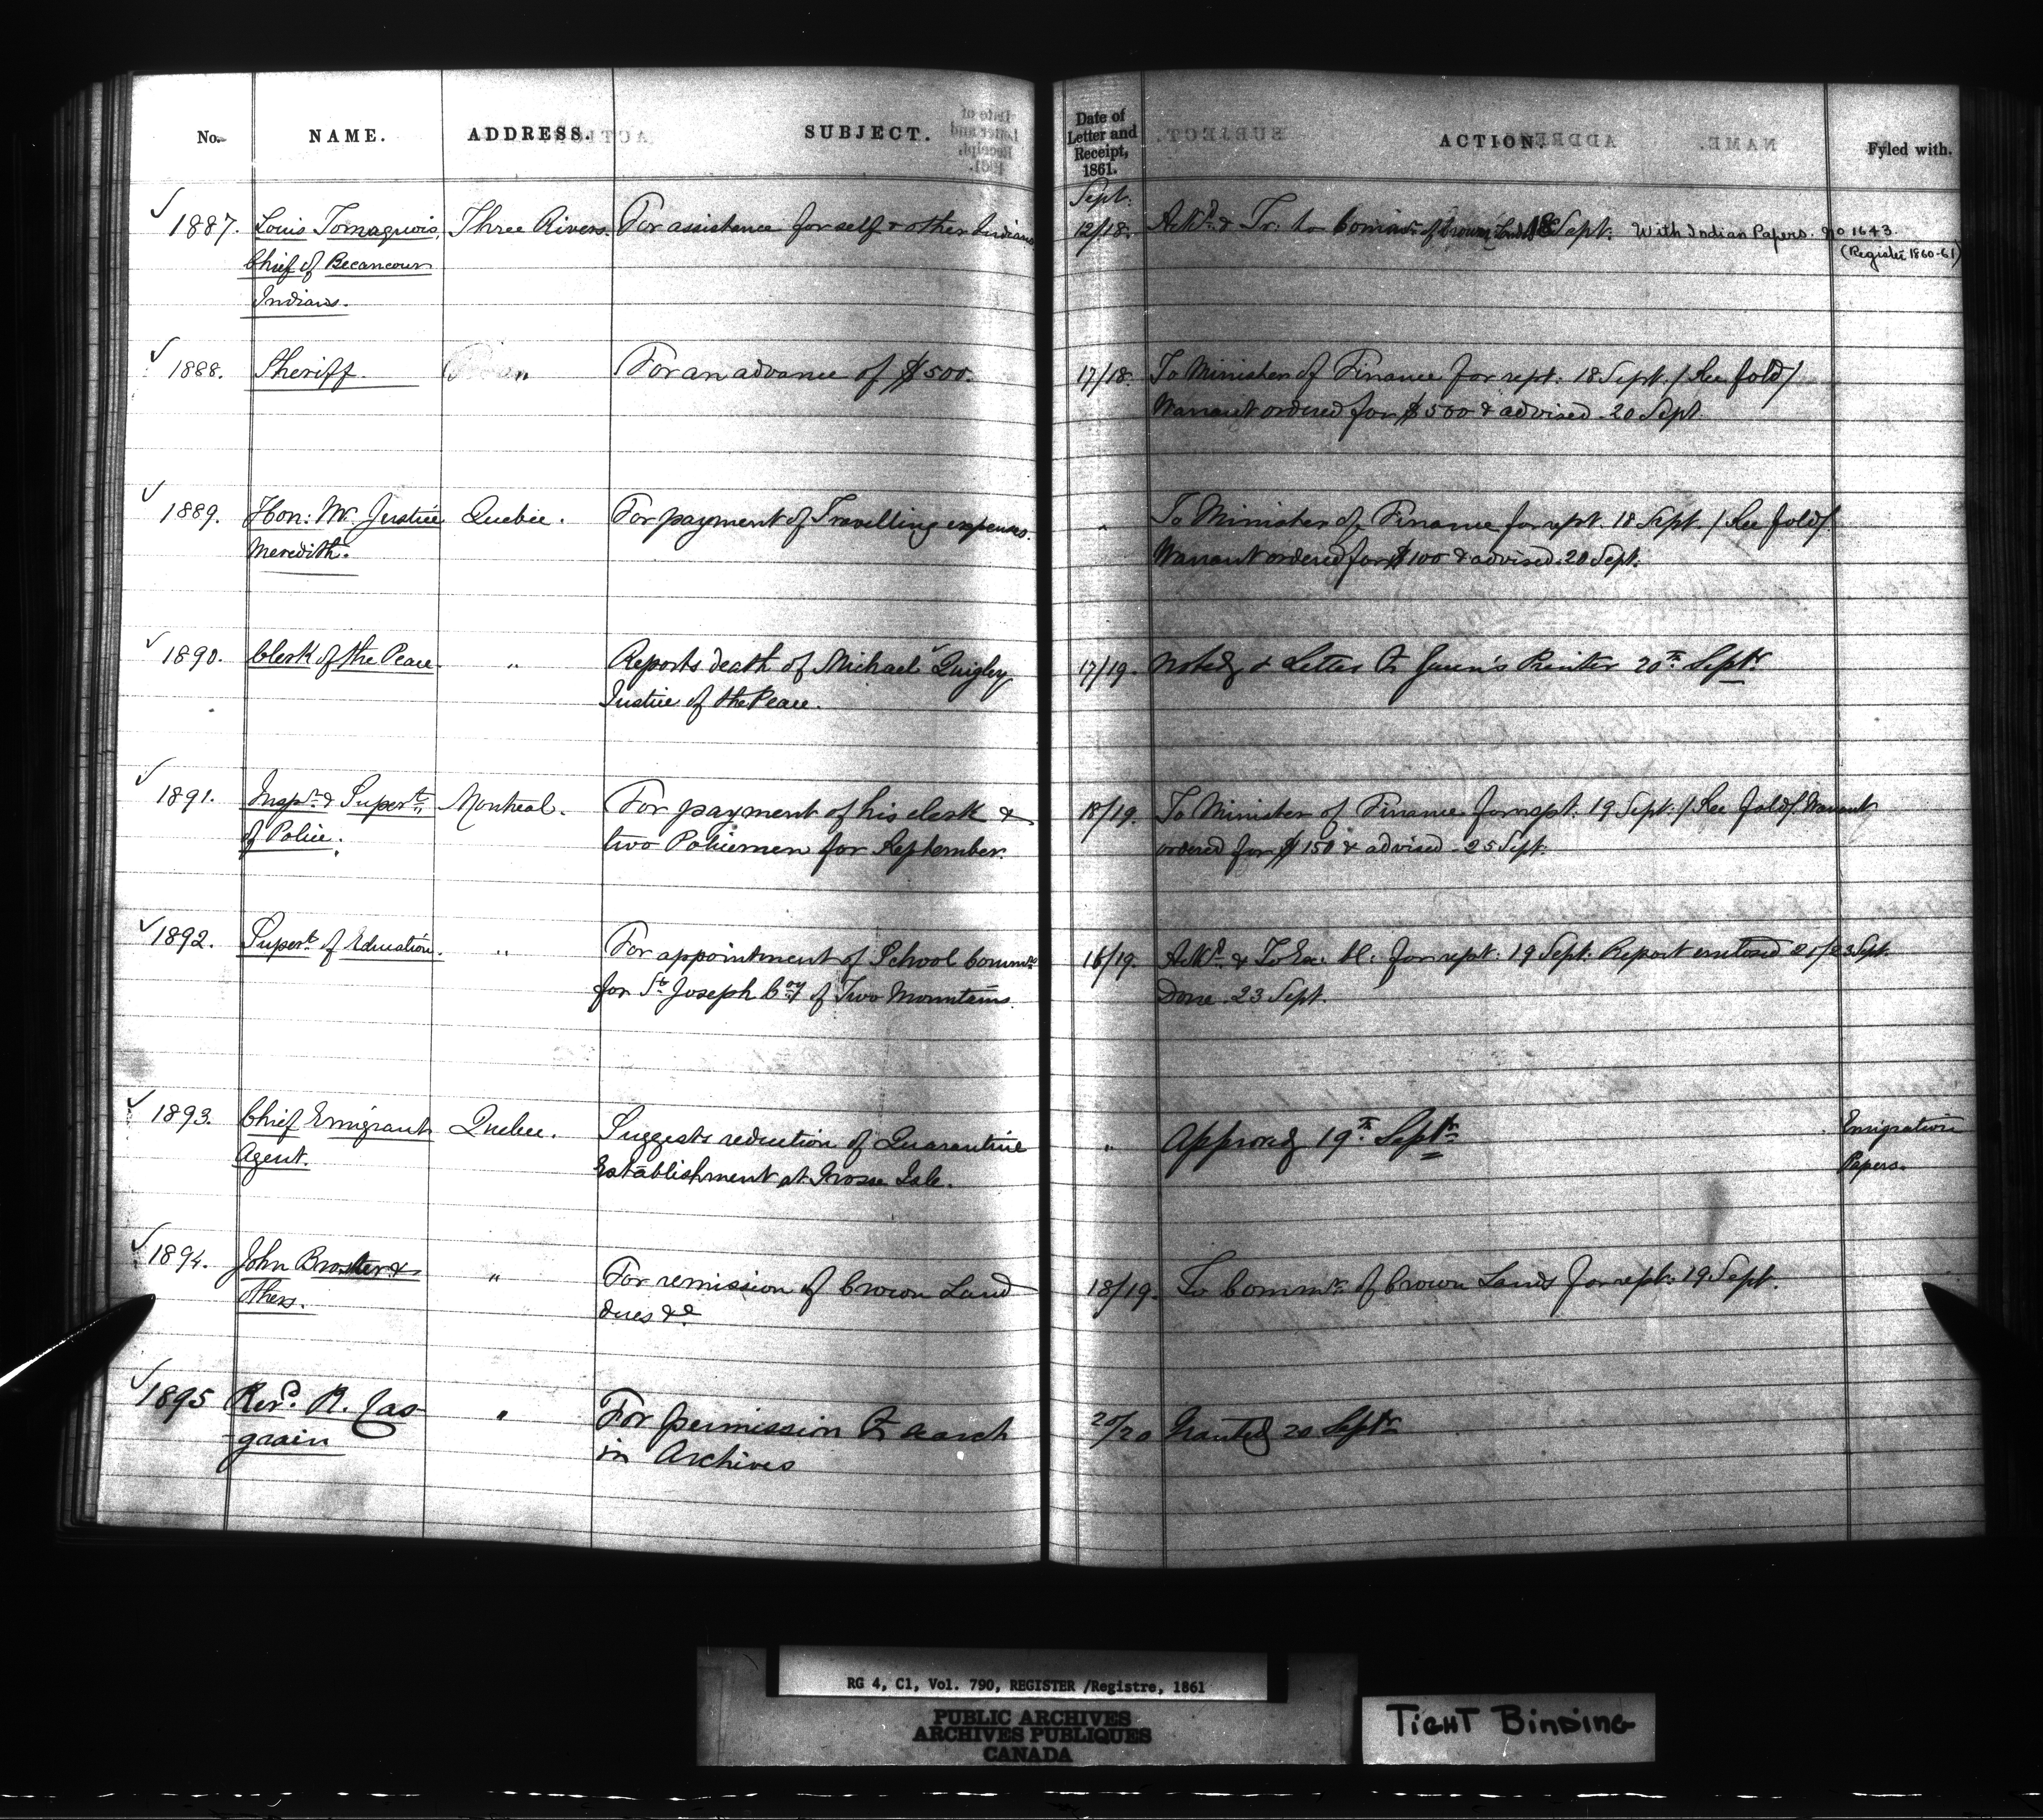 No. NAME. ADDRESS. SUBJECT.
Date of Letter and Receipt, 1861. ACTION. Fyled with.
Sept.
1887. Louis Tomaquois, Three Rivers. For assistance for self & other Indians 12/18. Ackd. & Tr. to Commr. of Crown Lands 18 Sept. With Indian Papers. No 1643.
Chief of Becancour (Register 1860-61)
Indians.
1888. Sheriff. " For an advance of $500. 17/18. To Minister of Finance for rept. 18 Sept. /See fold/
Warrant ordered for $500 & advised 20 Sept.
1889. Hon: Mr. Justice Quebec. For payment of Travelling expenses. " To Minister of Finance for rept. 18 Sept. /See fold/
Meredith. Warrant ordered for $100 & advised 20 Sept.
1890. Clerk of the Peace " Reports death of Michael Quigley 17/19. Noted & Letter to Queen's Printer 20th. Septr
Justice of the Peace.
1891. Inspr. & Supert. Montreal. For payment of his clerk & 18/19. To Minister of Finance for rept. 19 Sept. /See fold/ Warrant
of Police. two Policemen for September. ordered for $150 & advised 25 Sept.
1892. Supert. of Education. " For appointment of School Commrs 16/19. Ackd. & To Ex. C. for rept. 19 Sept. Report enclosed 20/23 Sept.
for St. Joseph Coy. of Two Mountains. Done 23 Sept.
1893. Chief Emigrant Quebec. Suggests reduction of Quarantine " Approved 19th. Septr Emigration
Agent. Establishment at Grosse Isle. Papers.
1894. John Broster & " For remission of Crown Land 18/19. To Commr. of Crown Lands for rept. 19 Sept.
others. dues &c
1895 Revd. R. Cas- " For permission to search 20/20 Granted 20 Septr
grain in Archives
RG 4, C1, Vol. 790, REGISTER /Registre, 1861
PUBLIC ARCHIVES
ARCHIVES PUBLIQUES
CANADA
TIGHT BINDING